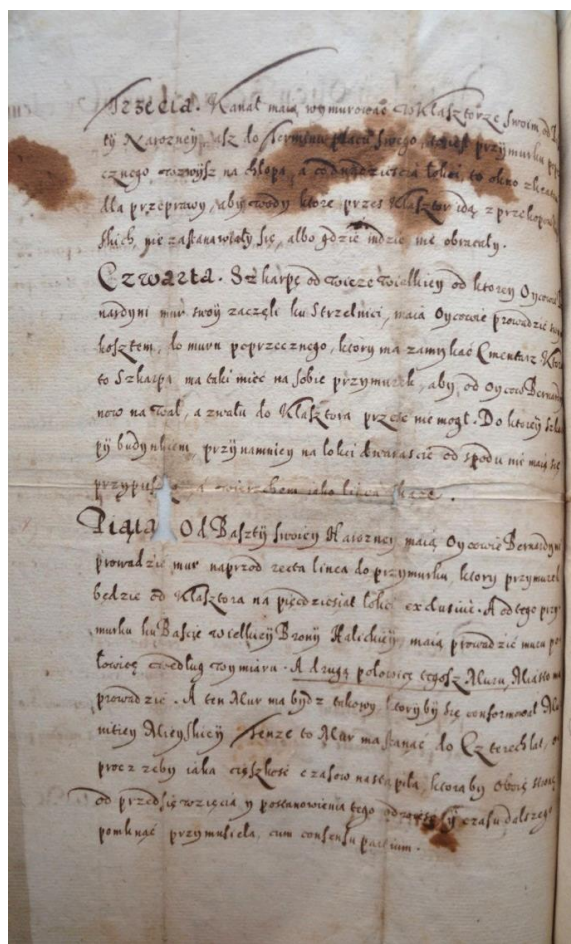 Trzecia. Kanał maią wymurować w Klasztorze swoim od
tÿ Narozney, asz do terminu placu swego, przÿmurku
cznego wzwÿsz na chłopa, a łokci, to okno
dla przeprawy, aby wody ktore przez Klasztor idą z przekopow
skich, nie zastanawiały się, albo gdzie indzie nie obracały.
Czwarta. Szkarpę od wieże wielkiey od ktorey Oycowie
nardyni mur swoÿ zaczęli ku Strzelnici, maią Oycowie prowadzić
kosztem, do muru poprzecznego, ktory ma zamykać Cmentarz
to Szkarpa ma taki mieć na sobie przymurek, aby od Oycow Bernardy
now na wał, a z wału do Klasztora przeiść nie mogł. Do ktoreÿ
pÿ budynkiem, przÿnamniey na łokci dwanaście od spodu nie maią się
wierzchem iako linea
Piąta. Od Basztÿ swoieÿ Narozney maią Oycowie Bernardyni
prowadzić mur naprzod recta linea do przymurku, ktory przymurek
będzie od Klasztora na pięćdziesiąt łokci exclusiue. A od tego przy
murku ku Baszcie wielkieÿ Bronÿ Halickieÿ, maią prowadzić muru po
łowicę według wymiaru. A drugą połowicę tegosz Muru, Miasto ma
prowadzić. A ten Mur ma bydz takowy, ktory by się conformował Mu
nitieÿ Mieyskieÿ. Tenze to Mur ma stanąć do Czterech lat,
procz zeby iaka cięszkość czasow nastąpiła, ktora by oboię stronę
od przedsięwzięcia y postanowienia tego czasu dalszego
pomknąć przymusiela, cum consensu partium.